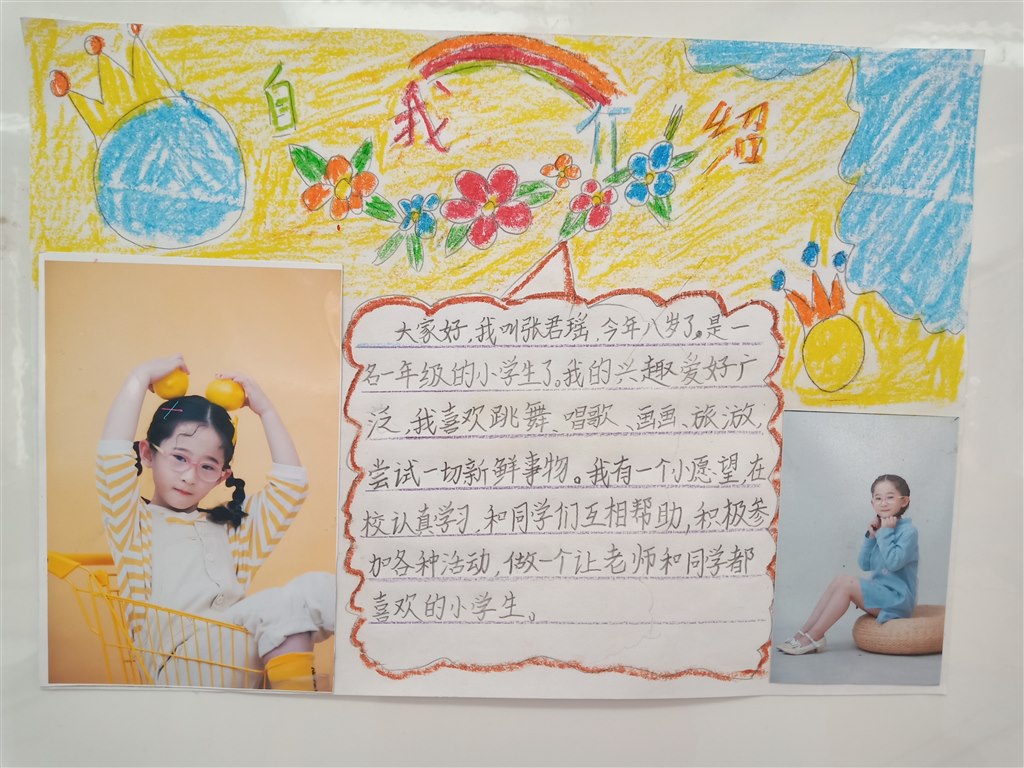 自我介绍
大家好,我叫张君瑶,今年八岁了。是一
名一年级的小学生了。我的兴趣爱好广
泛,我喜欢跳舞、唱歌、画画、旅游,
尝试一切新鲜事物。我有一个小愿望,在
校认真学习,和同学们互相帮助,积极参
加各种活动,做一个让老师和同学都
喜欢的小学生。